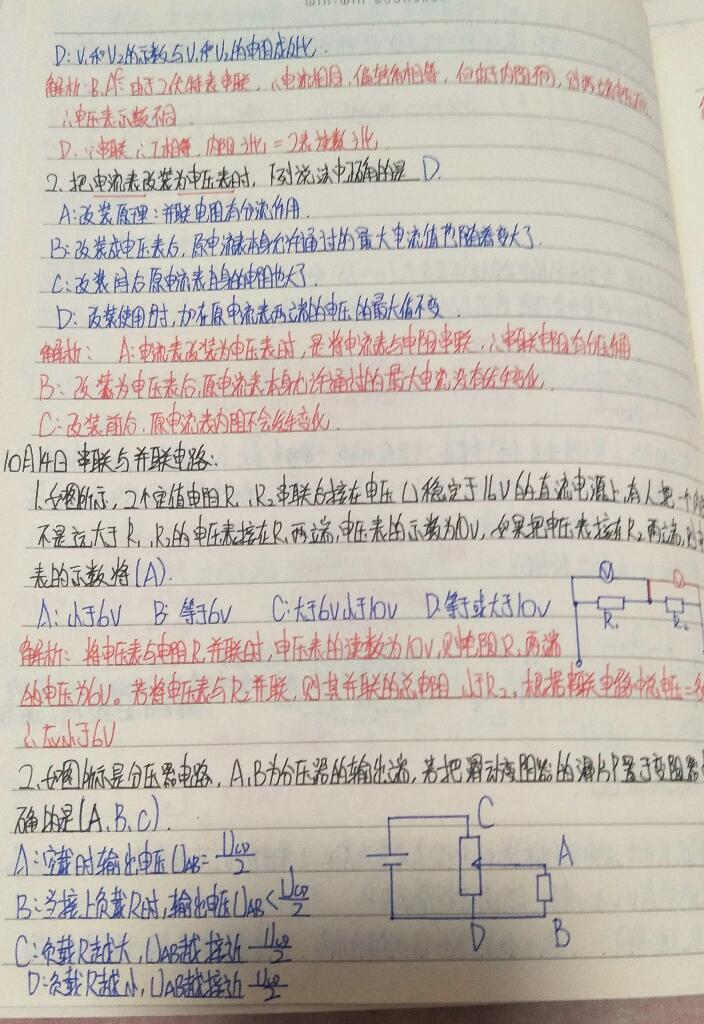 D: V₁和V₂的示数与V₁和V₂的电阻成正比.
解析: B, A: 由于2伏特表串联, ∴电流相同, 偏转角相等, 但由于内阻不同, 则两端电压不同,
∴电压表示数不同.
D. ∵串联 ∴I相等, 内阻之比 = 2表读数之比
2. 把电流表改装为电压表时, 下列说法中正确的是 D.
A: 改装原理: 并联电阻有分流作用.
B: 改装成电压表后, 原电流表本身允许通过的最大电流值也随着变大了.
C: 改装用后原电流表自身的电阻也大了.
D: 改装使用时, 加在原电流表两端的电压的最大值不变.
解析: A: 电流表改装为电压表时, 是将电流表与电阻串联, ∴串联电阻有分压作用
B: 改装为电压表后, 原电流表本身允许通过的最大电流没有发生变化.
C: 改装前后, 原电流表内阻不会发生变化.
10月14日 串联与并联电路:
1. 如图所示, 2个定值电阻R₁, R₂串联后接在电压U稳定于16V的直流电源上, 有人把一个内阻
不是远大于R₁, R₂的电压表接在R₁两端, 电压表的示数为10V, 如果把电压表接在R₂两端,
表的示数将(A).
A: 小于6V B: 等于6V C: 大于6V小于10V D: 等于或大于10V
V
R₁ R₂
解析: 将电压表与电阻R₁并联时, 电压表的读数为10V, 则电阻R₂两端
的电压为6V。若将电压表与R₂并联, 则其并联的总电阻小于R₂, 根据串联电路中总电压=
∴小于6V
2. 如图所示是分压器电路, A, B为分压器的输出端, 若把滑动变阻器的滑片P置于变阻器
确的是(A, B, C).
A: 空载时输出电压U_AB = U_CD/2
B: 当接上负载R时, 输出电压U_AB < U_CD/2
C: 负载R越大, U_AB越接近 U_CD/2
D: 负载R越小, U_AB越接近 U_CD/2
C
A
D B